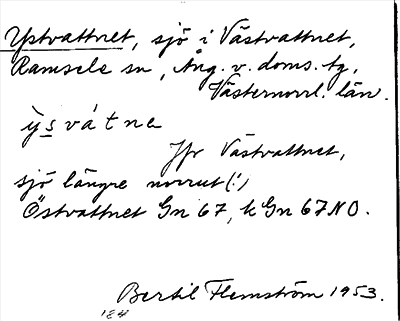 Ystvattnet, sjö i Västvattnet,
Ramsele sn, Ång. v. doms. tg,
Västernorrl. län.
ỳsvátna
Jfr Västvattnet,
sjö längre norrut (!)
Östvattnet Gn 67, k Gn 67 NO.
Bertil Flemström 1953.
124